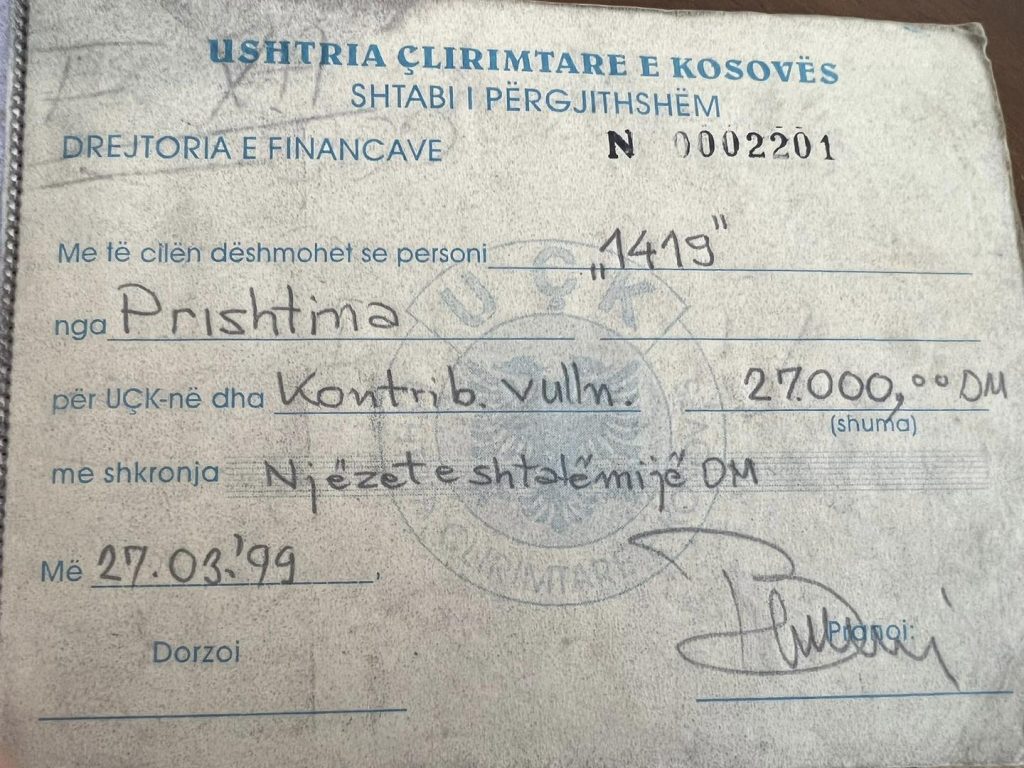 USHTRIA ÇLIRIMTARE E KOSOVËS
SHTABI I PËRGJITHSHËM
DREJTORIA E FINANCAVE N 0002201
Me të cilën dëshmohet se personi „1419"
nga Prishtina
për UÇK-në dha Kontrib. vulln. 27.000,00 DM
(shuma)
me shkronja Njëzet e shtatëmijë DM
Më 27.03.'99,
Dorzoi
Pranoi:
UÇK